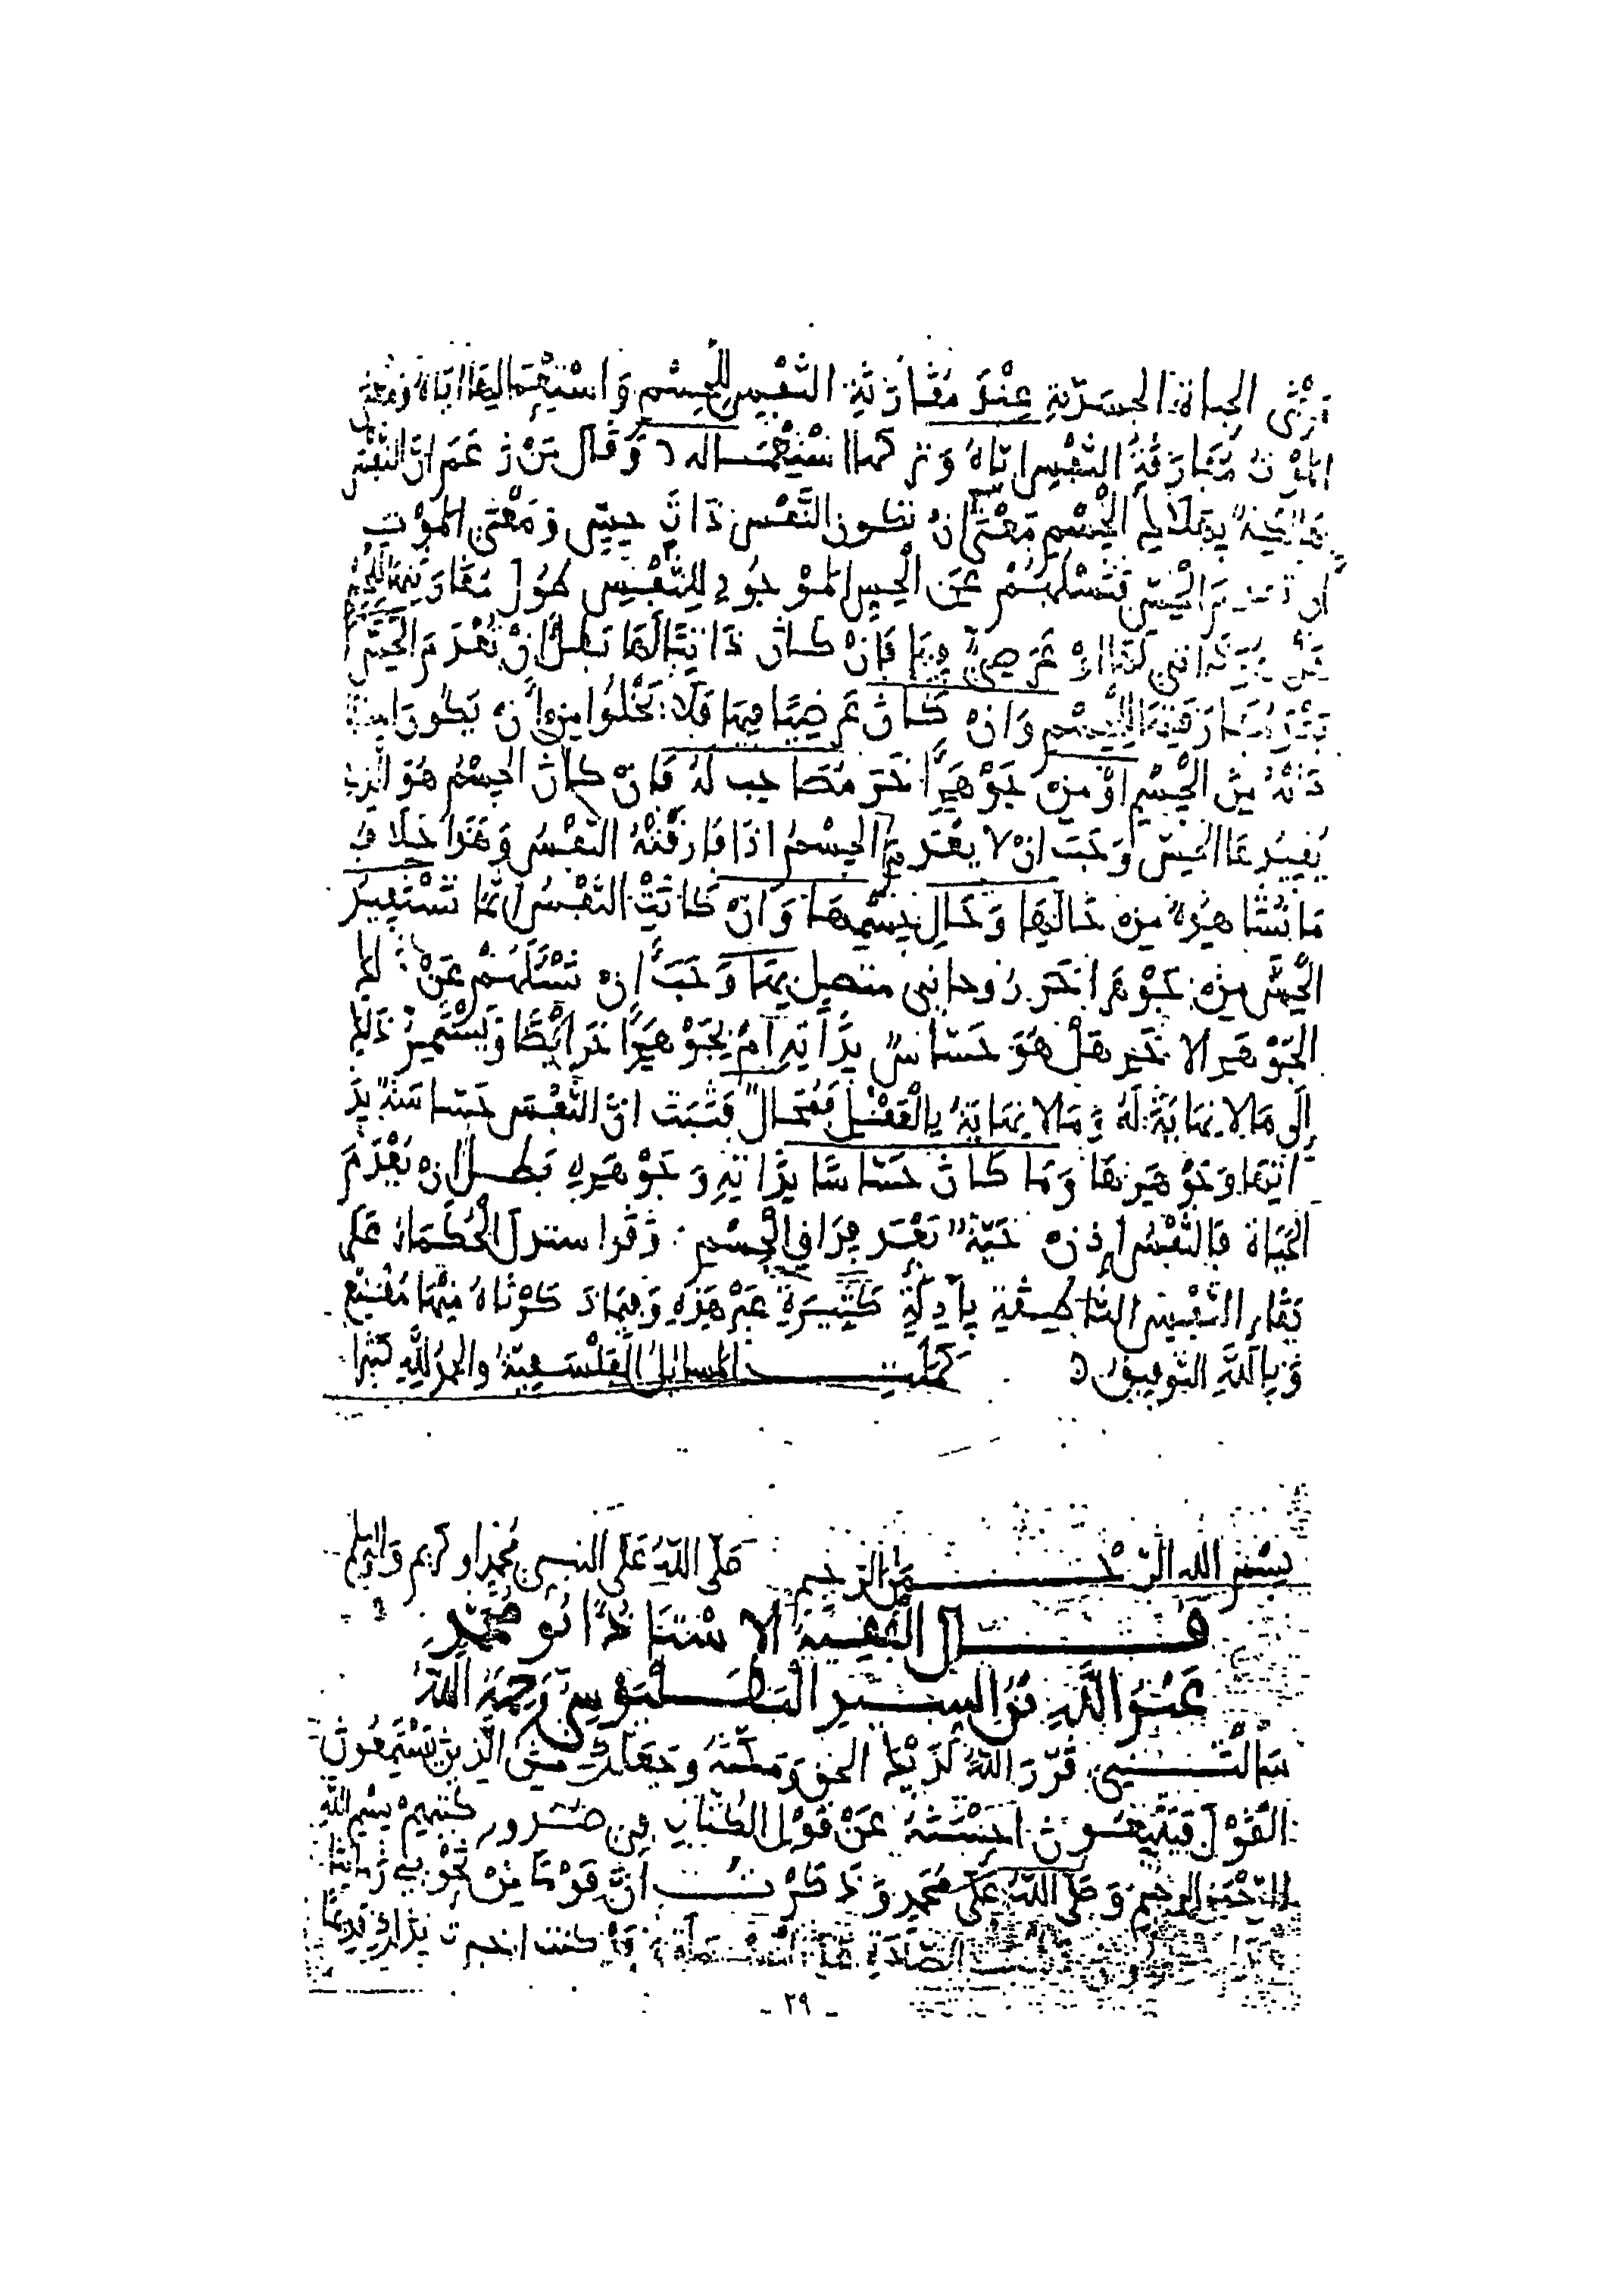 معنى الحياة الجسدية عند مقارنة النفس للجسم واستعمالها اياه ومعنى
الموت مفارقة النفس اياه وتركها استعماله وقال من زعم ان النفس
حية بعد الجسم معنى ان تكون النفس ذات حس ومعنى الموت
ان تعدم الحس فنسلهم عن الحس الموجود للنفس طول مقارنتها للجسم
هل هو ذاتي لها او عرضي فيها فان كان ذاتيا لها بطل ان تعدم الحس
عند مفارقتها للجسم وان كان عرضيا فيها فلا يخلوا من ان يكون
من الجسم او من جوهر اخر مصاحب له فان كان الجسم هو الذي
يفيدها الحس وجب ان لا يعدم الجسم اذا فارقته النفس وهذا خلاف
ما نشاهده من حالها وحال جسمها وان كانت النفس انما تستفيد
الحس من جوهر اخر روحاني متصل بها وجب ان نسئلهم عن ذلك
الجوهر الاخر هل هو حساس بذاته ام بجوهر اخر ايضا ويستمر ذلك
الى ما لا نهاية له وما لا نهاية بالفعل فمحال فثبت ان النفس حساسة بذ
اتها وجوهرها وما كان حساسا بذاته وجوهره بطل ان يعدم
الحياة فالنفس اذن حية بعد فراق الجسم وقد استدل الحكماء على
بقاء النفس الناطقة بادلة كثيرة غير هذه وفيما ذكرناه منها مقنع
وبالله التوفيق كملت المسايل الفلسفية والحمد لله كثيرا
بسم الله الرحمن الرحيم صلى الله على النبي محمد الكريم واله وسلم
قال الفقيه الاستاذ ابو محمد
عبد الله بن السيد البطليوسي رحمه الله
سالتني قرر الله لديك الحق ومكنه وجعلك من الذين يستمعون
القول فيتبعون احسنه عن قول الكتاب في صدور كتبهم بسم الله
الرحمن الرحيم وصلى الله على محمد وذكرت ان قوما من نحويي زماننا
الصلاة على البسملة وقد كنت اخبرت بذلك قديما
- ٢٩ -